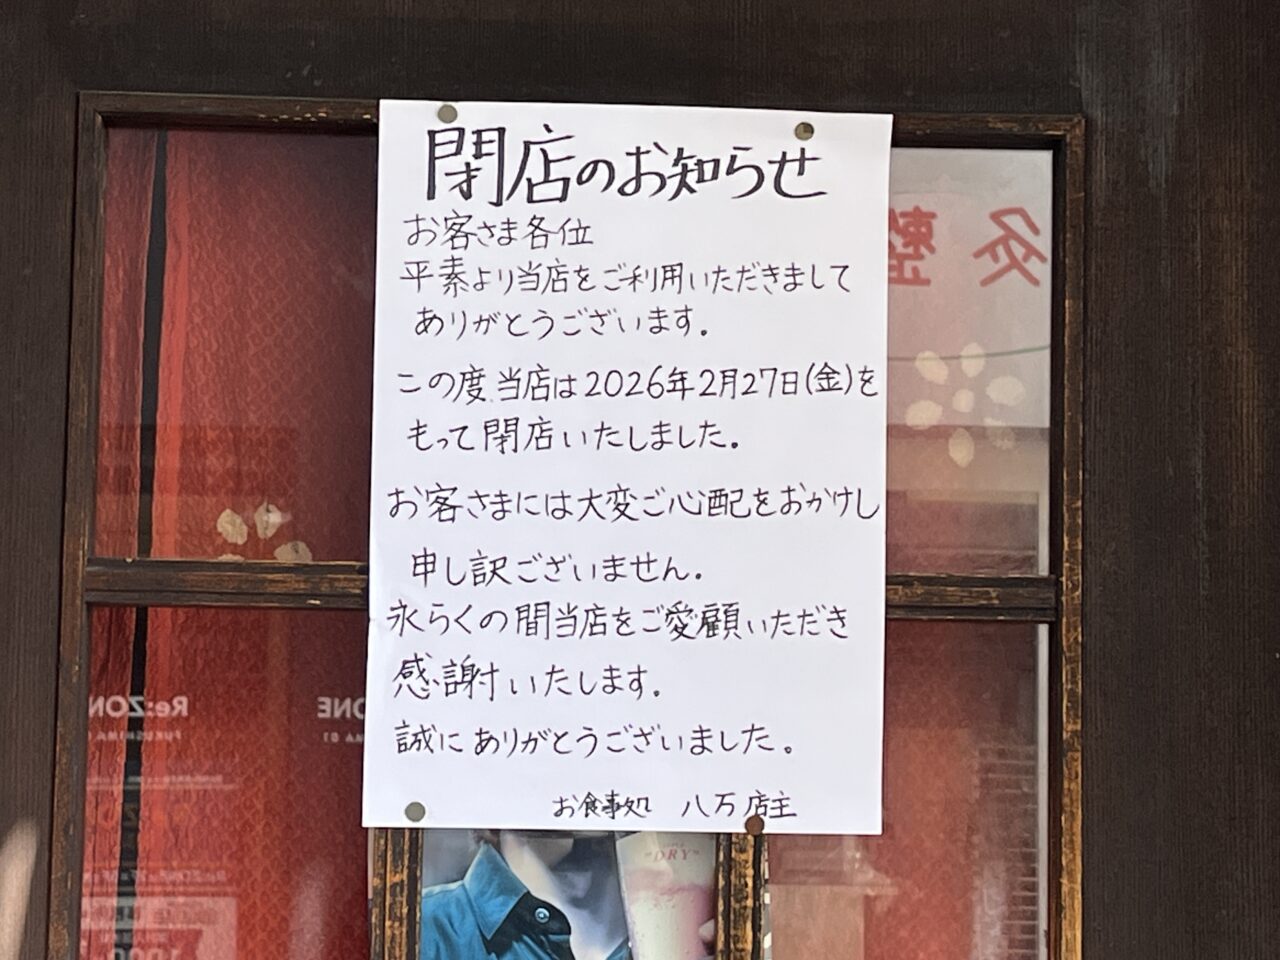 閉店のお知らせ
お客さま各位
平素より当店をご利用いただきまして
ありがとうございます。
この度、当店は2026年2月27日(金)を
もって閉店いたしました。
お客さまには大変ご心配をおかけし
申し訳ございません。
永らくの間当店をご愛顧いただき
感謝いたします。
誠にありがとうございました。
お食事処 八万 店主
整 灸
Re:ZON
"DRY"